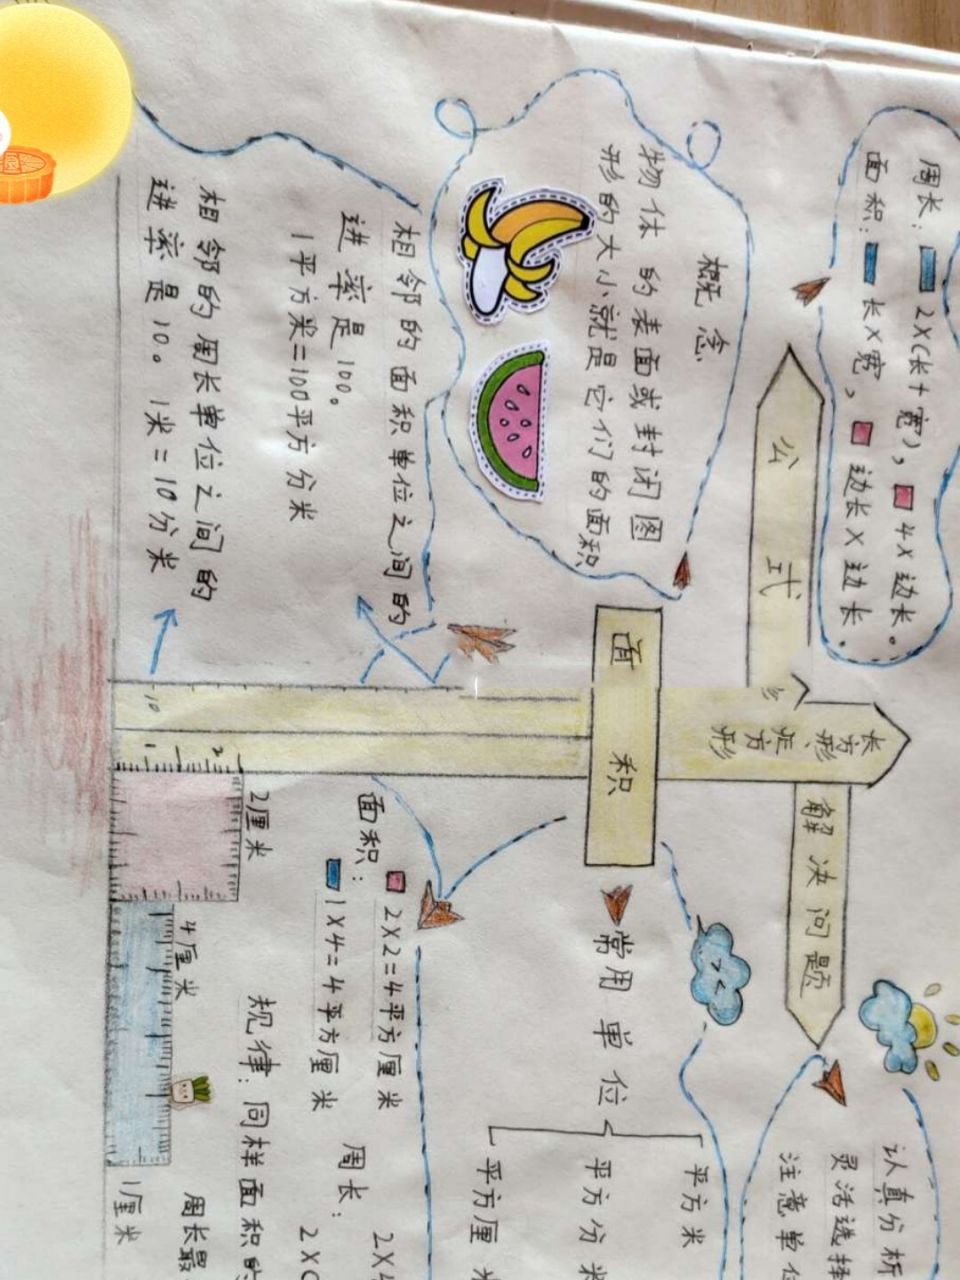 周长: 2X(长+宽), 4X边长。
面积: 长X宽, 边长X边长.
公式
长方形、
正方
形
解决问题
认真分析
灵活选择
注意单位
概念
物体的表面或封闭图
形的大小就是它们的面积
面积
常用单位
平方米
平方分米
平方厘米
相邻的面积单位之间的
进率是100。
1平方米=100平方分米
相邻的周长单位之间的
进率是10。1米=10分米
面积: 2X2=4平方厘米
1X4=4平方厘米
周长:
2X4
2X(
规律: 同样面积的
周长最
2厘米
4厘米
1厘米
10
1
2